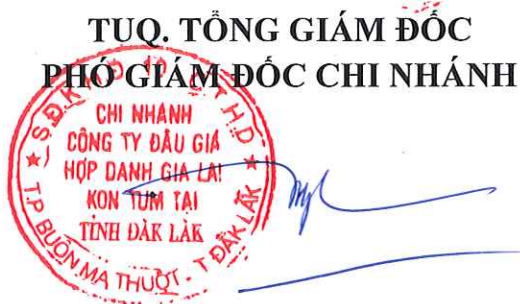 TUQ. TỔNG GIÁM ĐỐC
PHÓ GIÁM ĐỐC CHI NHÁNH
CHI NHÁNH
CÔNG TY ĐẤU GIÁ
HỢP DANH GIA LAI
KON TUM TẠI
TỈNH ĐẮK LẮK
T.P BUÔN MA THUỘT - T ĐẮK LẮK